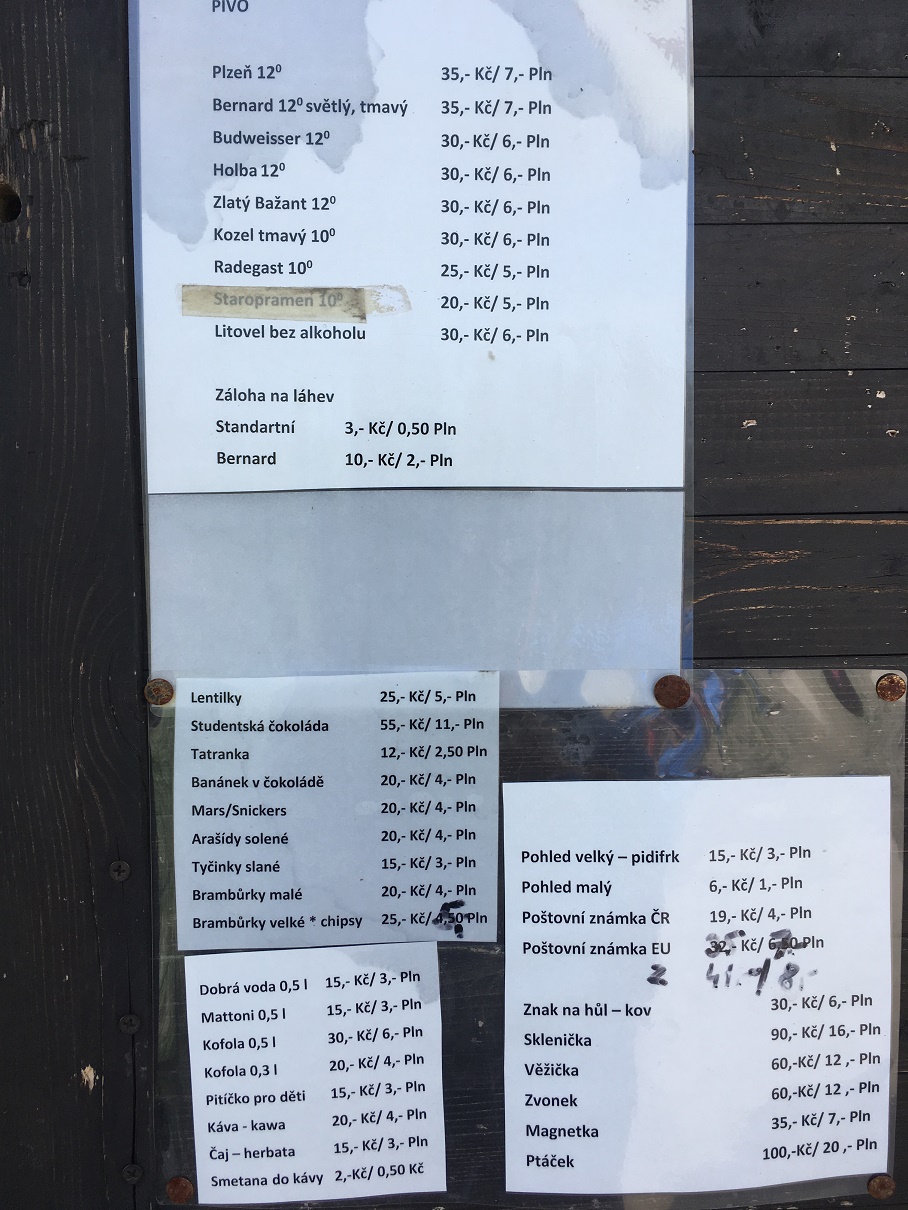 PIVO
Plzeň 12⁰ 35,- Kč/ 7,- Pln
Bernard 12⁰ světlý, tmavý 35,- Kč/ 7,- Pln
Budweisser 12⁰ 30,- Kč/ 6,- Pln
Holba 12⁰ 30,- Kč/ 6,- Pln
Zlatý Bažant 12⁰ 30,- Kč/ 6,- Pln
Kozel tmavý 10⁰ 30,- Kč/ 6,- Pln
Radegast 10⁰ 25,- Kč/ 5,- Pln
Staropramen 10⁰ 20,- Kč/ 5,- Pln
Litovel bez alkoholu 30,- Kč/ 6,- Pln
Záloha na láhev
Standartní 3,- Kč/ 0,50 Pln
Bernard 10,- Kč/ 2,- Pln
Lentilky 25,- Kč/ 5,- Pln
Studentská čokoláda 55,- Kč/ 11,- Pln
Tatranka 12,- Kč/ 2,50 Pln
Banánek v čokoládě 20,- Kč/ 4,- Pln
Mars/Snickers 20,- Kč/ 4,- Pln
Arašídy solené 20,- Kč/ 4,- Pln
Tyčinky slané 15,- Kč/ 3,- Pln
Brambůrky malé 20,- Kč/ 4,- Pln
Brambůrky velké * chipsy 25,- Kč/ 5,- Pln
Dobrá voda 0,5 l 15,- Kč/ 3,- Pln
Mattoni 0,5 l 15,- Kč/ 3,- Pln
Kofola 0,5 l 30,- Kč/ 6,- Pln
Kofola 0,3 l 20,- Kč/ 4,- Pln
Pitíčko pro děti 15,- Kč/ 3,- Pln
Káva - kawa 20,- Kč/ 4,- Pln
Čaj – herbata 15,- Kč/ 3,- Pln
Smetana do kávy 2,-Kč/ 0,50 Kč
Pohled velký – pidifrk 15,- Kč/ 3,- Pln
Pohled malý 6,- Kč/ 1,- Pln
Poštovní známka ČR 19,- Kč/ 4,- Pln
Poštovní známka EU 32,- Kč/ 6,50 Pln
2 41.-/ 8,-
Znak na hůl – kov 30,- Kč/ 6,- Pln
Sklenička 90,- Kč/ 16,- Pln
Věžička 60,-Kč/ 12 ,- Pln
Zvonek 60,-Kč/ 12 ,- Pln
Magnetka 35,- Kč/ 7,- Pln
Ptáček 100,-Kč/ 20 ,- Pln